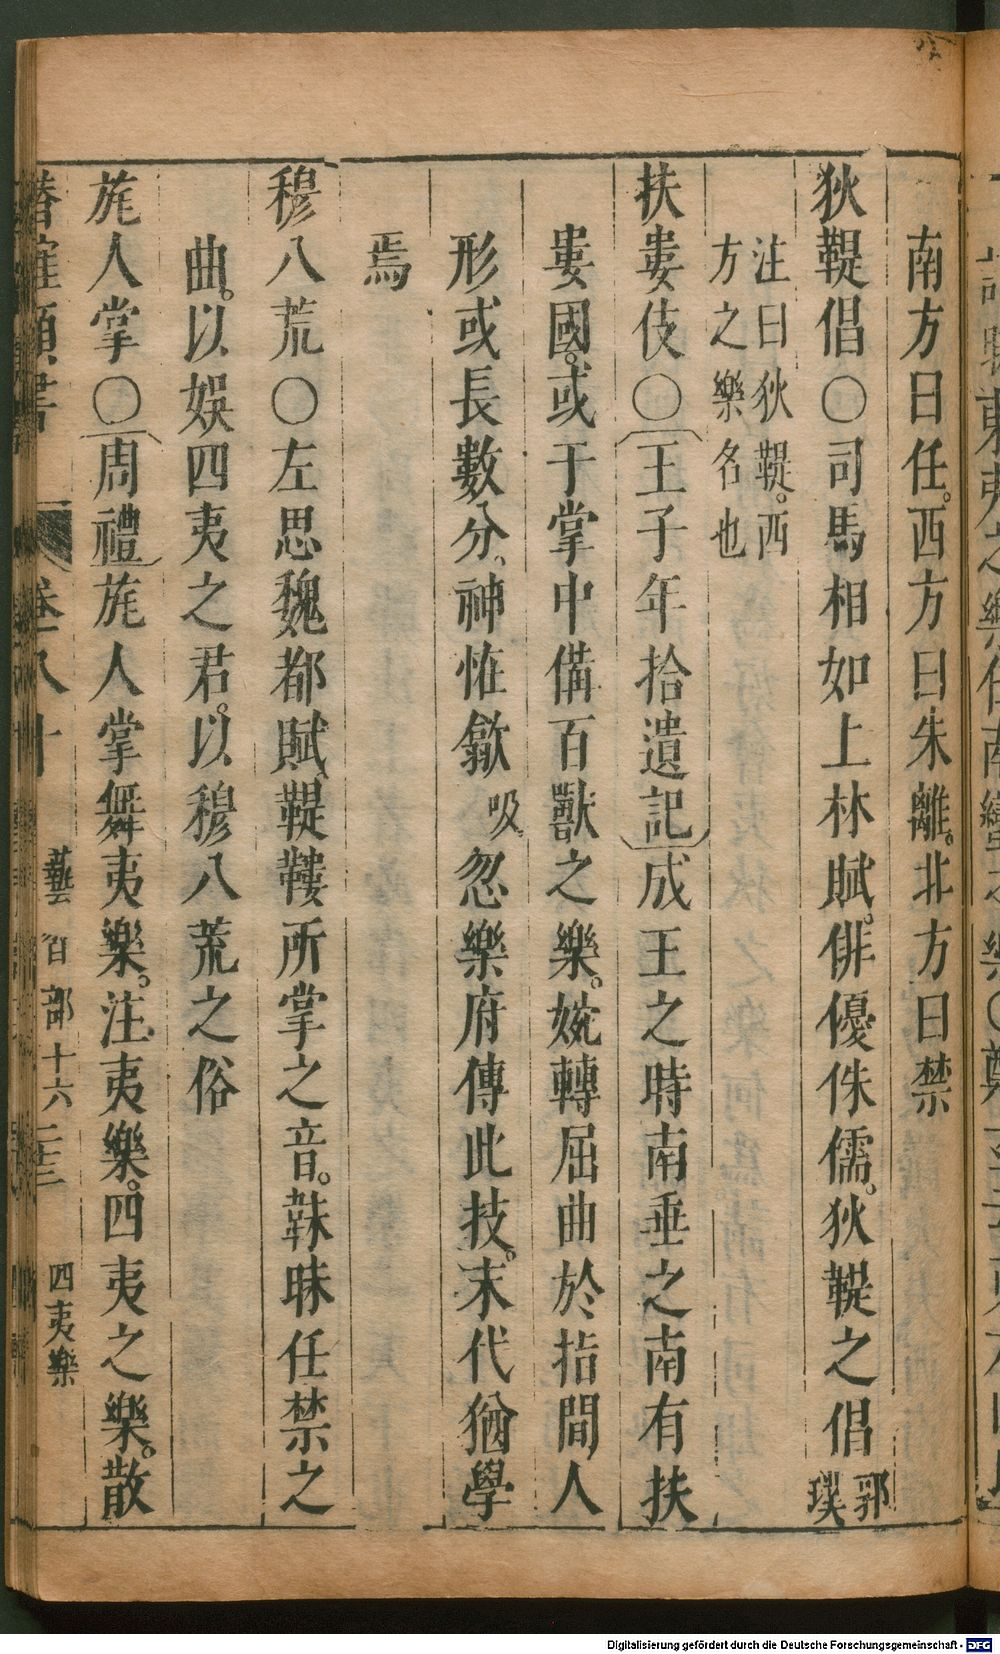 南方曰任。西方曰朱離。北方曰禁
狄鞮倡〇司馬相如上林賦。俳優侏儒。狄鞮之倡郭璞
注曰狄鞮。西
方之樂名也
扶婁伎〇王子年拾遺記成王之時南垂之南有扶
婁國。或于掌中備百獸之樂。婉轉屈曲於指間人
形或長數分。神怪歘吸忽樂府傳此技。末代猶學
焉
穆八荒〇左思魏都賦。鞮鞻所掌之音。韎昧任禁之
曲。以娛四夷之君。以穆八荒之俗
旄人掌〇周禮旄人掌舞夷樂。注夷樂。四夷之樂。散
卷一八十 藝習部十六 二十三 四夷樂
Digitalisierung gefördert durch die Deutsche Forschungsgemeinschaft - DFG